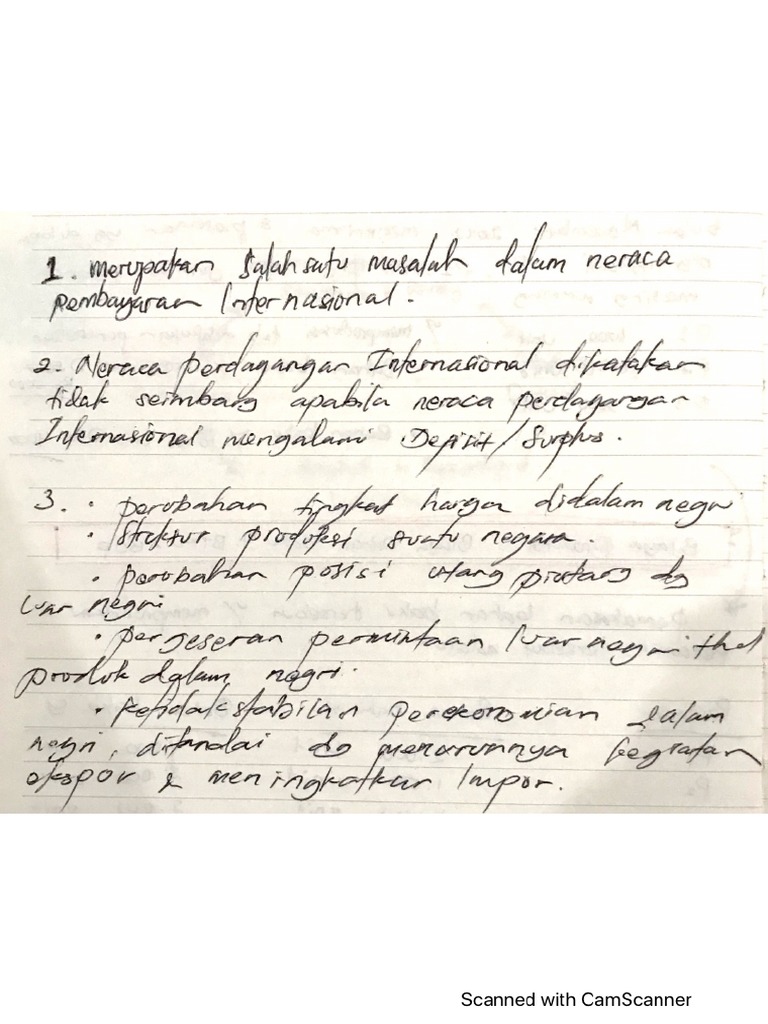 1. merupakan salah satu masalah dalam neraca
pembayaran Internasional.
2. Neraca perdagangan Internasional dikatakan
tidak seimbang apabila neraca perdagangan
Internasional mengalami Depisit/Surplus.
3. • perubahan tingkat harga didalam negri
• Struktur produksi suatu negara.
• perubahan posisi utang piutang dg
luar negri
• pergeseran permintaan luar negri thd
produk dalam negri.
• ketidakstabilan perekonomian dalam
negri, ditandai dg menurunnya kegiatan
ekspor & meningkatkan Impor.
Scanned with CamScanner